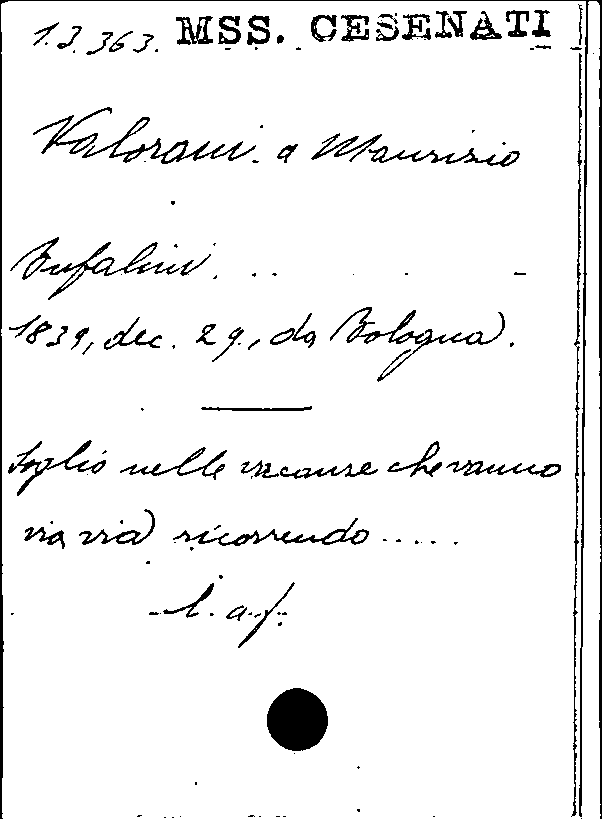 1.3.363. MSS. CESENATI
Valorani. a Maurizio
Bufalini.
1839, dec. 29, da Bologna.
Soglio nelle vacanze che vanno
via via ricorrendo.....
l. a. f.